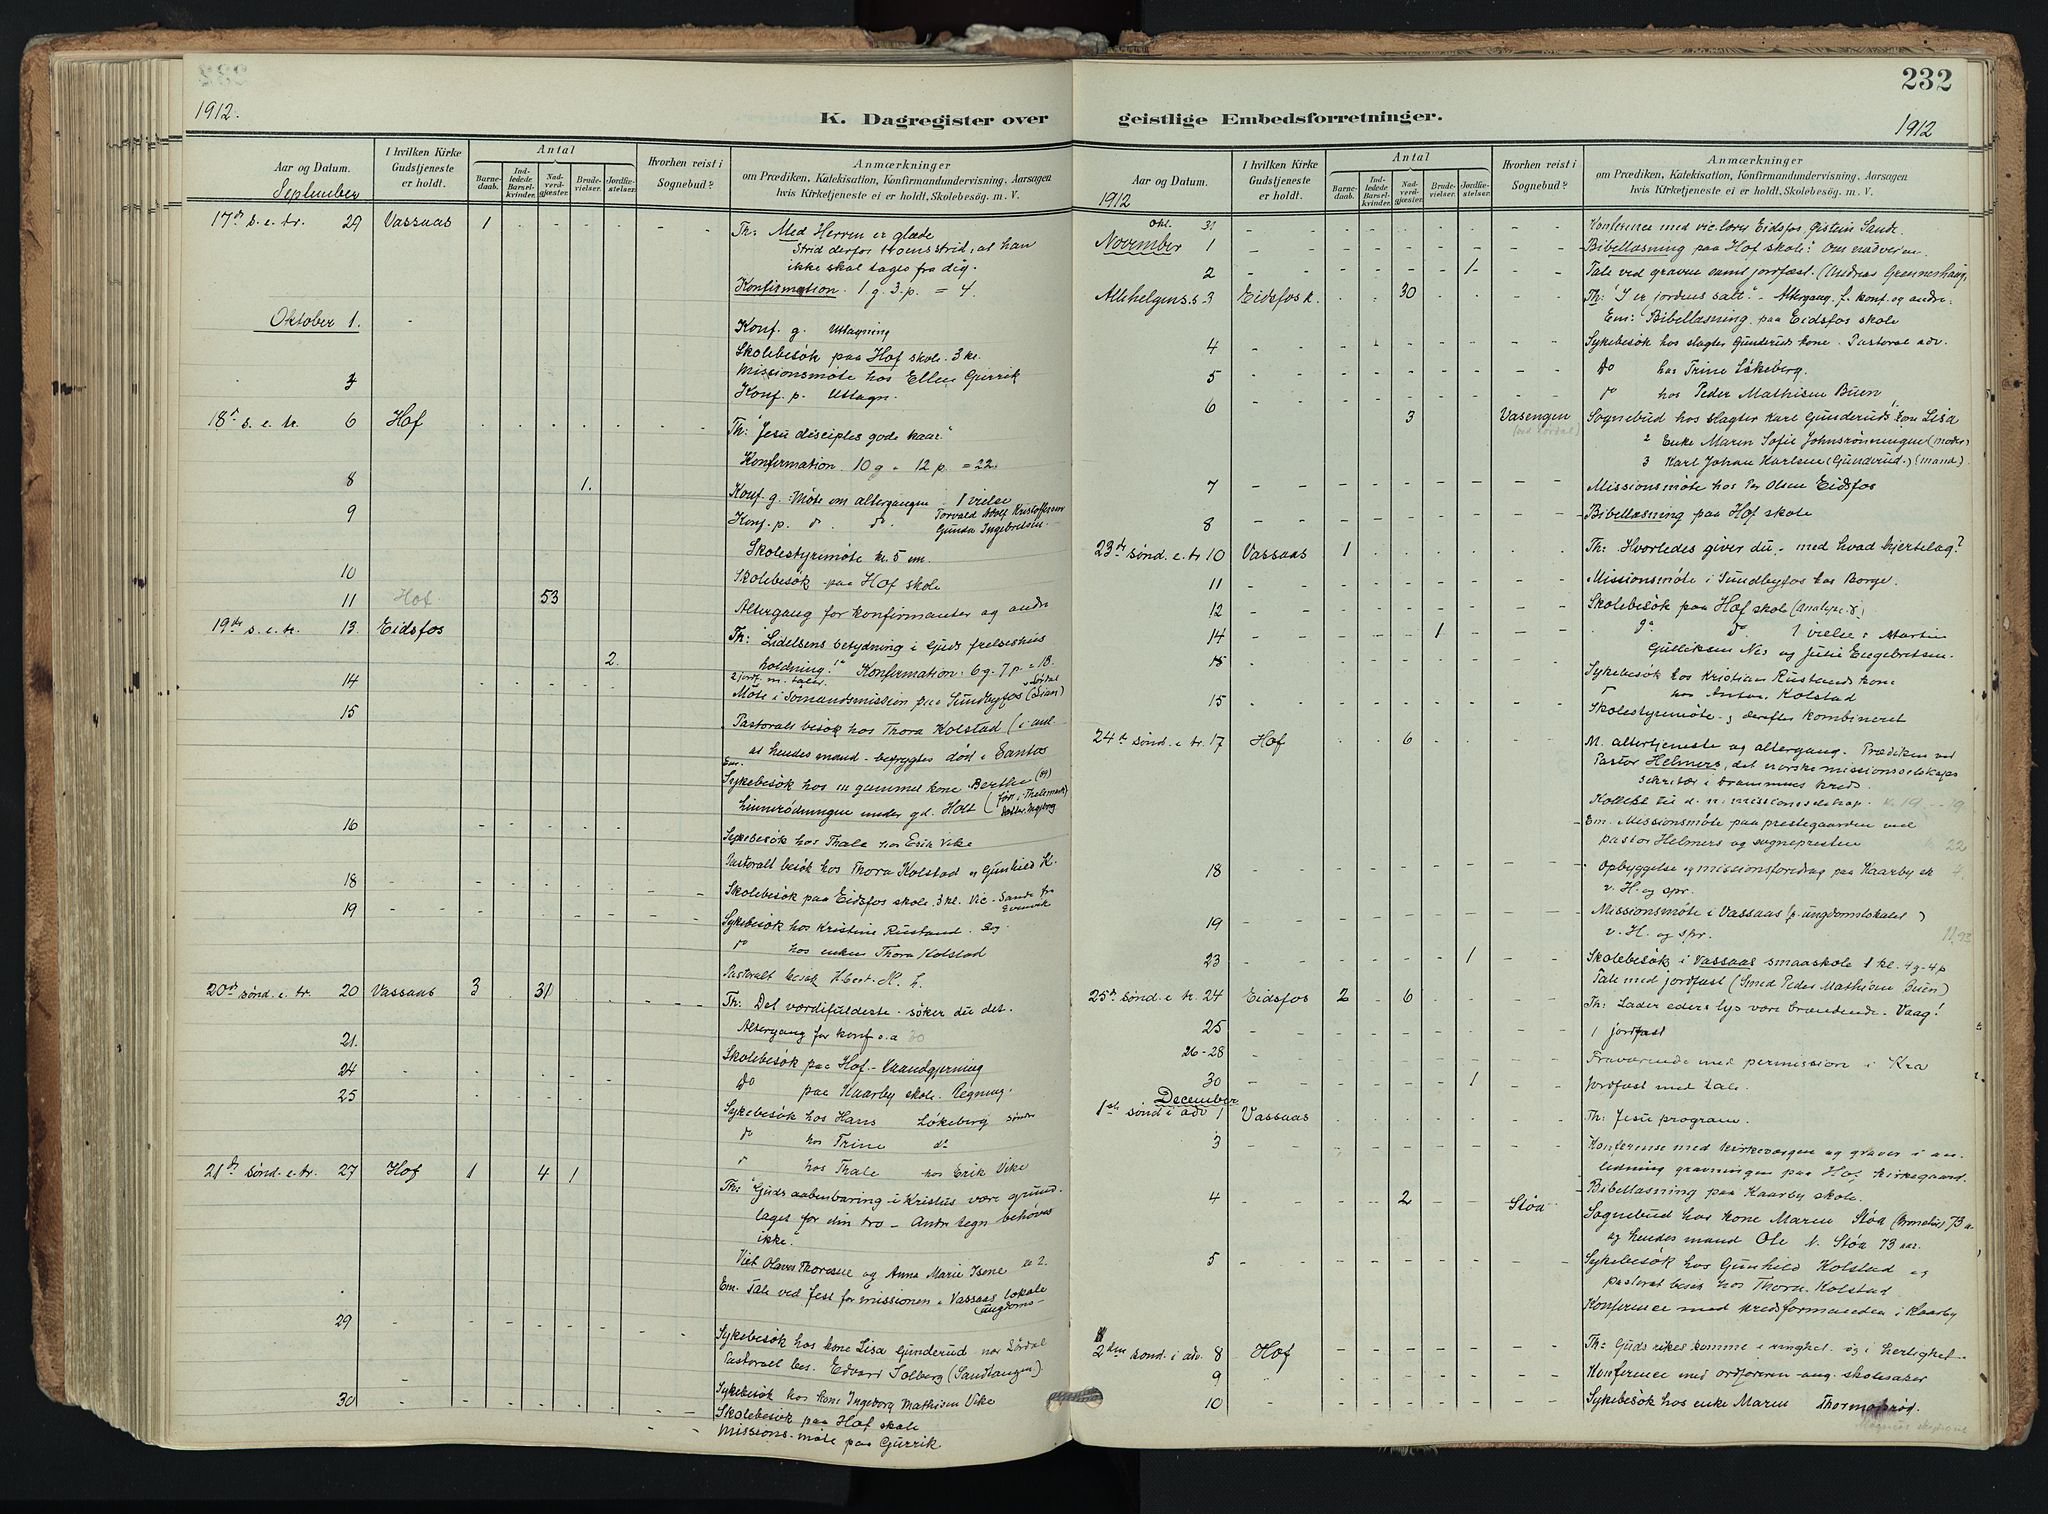 232
1912.
K. Dagregister over geistlige Embedsforretninger.
1912
Aar og Datum.
I hvilken Kirke Gudstjeneste er holdt.
Antal
Barnedaab.
Indledede Barselkvinder.
Nadverdgjæster.
Brudevielser.
Jordfæstelser.
Hvorhen reist i Sognebud?
Anmærkninger
om Prædiken, Katekisation, Konfirmandundervisning, Aarsagen
hvis Kirketjeneste ei er holdt, Skolebesög. m. V.
September
17de s. e. tr. 29 Vassaas 1
Th: Med Herren er glæde
Strid derfor troens strid, at han
ikke skal tages fra dig.
Konfirmation. 1 g. 3 p. = 4.
Oktober 1.
Konf. g. Uttagning
Skolebesök paa Hof skole. 3 kl.
3
Missionsmöte hos Ellen Gurrik
Konf. p. Uttagn.
18de s. e. tr. 6 Hof
Th: "Jesu disciples gode kaar."
Konfirmation. 10 g - 12 p. = 22.
8 1.
Konf. g: Möte om altergangen - 1 vielse
Torvald Adolf Kristoffersen
9
Konf. p. do. do. Gunda Ingebretsen.
Skolestyremöte kl. 5 em.
10
Skolebesök paa Hof skole
11 Hof 53
Altergang for konfirmanter og andre
19de s. e. tr. 13. Eidsfos
Th: "Lidelsens betydning i Guds frelseshus
2.
holdning!" Konfirmation. 6 g. 7 p = 13.
2 jordf. m. taler.
14
Möte i Sömandsmission paa Sundbyfos
15
Pastoralt besök hos Thora Kolstad (i anl.
at hendes mand - befrygtes död i Santos
Em.
Sykebesök hos en gammel kone Berthe (89)
under gd. Holt
16
Sykebesök hos Thale hos Erik Vike
Pastoralt besök hos Thora Kolstad og Gunhild K.
18
Skolebesök paa Eidsfos skole. 3 kl. Vic. Sande fra
19
Sykebesök hos Kristine Rustand. Sog.
do hos enken Thora Kolstad
Pastoralt besök
20de sönd. e. tr. 20 Vassaas 3 31
Th: Det værdifuldeste - söker du det.
Altergang for konf. o. a 30
21.
Skolebesök paa Hof - Haandgjerning
24
do paa Kaarby skole. Regning.
25
Sykebesök hos Hans Lökeberg söndre
do hos Trine do
do hos Thale hos Erik Vike
21de sönd. e. tr. 27 Hof 1 4 1
Th: "Guds aabenbaring i Kristus være grund-
laget for din tro - Andre tegn behöves
ikke."
Viet Olaves Thoresen og Anna Marie Isene
Em. Tale ved fest for missionen i Vassaas lokale
(ungdoms-
29
Sykebesök hos kone Lisa Gunderud nær Sördal
Pastoralt bes. Edvard Solberg (Sandtangen)
30
Sykebesök hos kone Ingeborg Mathisen Vike
Skolebesök paa Hof skole
Missions-möte paa Gurrik
Aar og Datum.
I hvilken Kirke Gudstjeneste er holdt.
Antal
Barnedaab.
Indledede Barselkvinder.
Nadverdgjæster.
Brudevielser.
Jordfæstelser.
Hvorhen reist i Sognebud?
Anmærkninger
om Prædiken, Katekisation, Konfirmandundervisning, Aarsagen
hvis Kirketjeneste ei er holdt, Skolebesög. m. V.
1912
Okt. 31
Konference med vic. Eidsfos Sande.
November 1
Bibellæsning paa Hof skole: Om nadveren.
2 1
Tale ved graven samt jordfæst.
Allehelgens s. 3 Eidsfos k. 30
Th: "I er jordens salt." - Altergang f. konf. og andre.
Em: Bibellæsning paa Eidsfos skole
4
Sykebesök hos slagter Gunderuds kone. Pastoral adv.
5
do hos Trine Lökeberg.
do hos Peder Mathisen Buen
6 3 Vasengen
Sognebud hos slagter Karl Gunderuds kone Lisa
2 Enke Maren Sofie Johnsrønningen (moder)
3 Karl Johan Karlsen (Gunderud.) (mand)
7
Missionsmöte hos Per Olsen Eidsfos
8
Bibellæsning paa Hof skole
23de sönd. e. tr 10 Vassaas 1
Th: Hvorledes giver du - med hvad hjertelag?
11
Missionsmöte i Sundbyfos hos Borge.
12
Skolebesök paa Hof skole
14 1
do 1 vielse: Martin
Gulliksen Nes og Julie Engebretsen.
15
Sykebesök hos Kristian Rustands kone
hos Anton Kolstad
15
Skolestyremöte - derefter kombineret
24de sönd. e. tr. 17 Hof 6
M. altertjeneste og altergang. Prædiken ved
Pastor Helmers, det norske missionsselskaps
sekretær i Drammens kreds.
Kollekt til d. n. missionsselskap. kr. 19
Em. Missionsmöte paa prestegaarden ved
pastor Helmers og sognepresten
22
18
Opbyggelse og missionsforedrag paa Kaarby sk
v. H. og spr.
19
Missionsmöte i Vassaas (p. ungdomslokalet)
v. H. og spr. 11,93
23 1
Skolebesök i Vassaas smaaskole 1 kl. 4 g - 4 p
Tale med jordfæst (Smed Peder Mathisen Buen)
25de sönd. e. tr. 24 Eidsfos 2 6
Th: Lader eders lys være brændende. Vaag!
25
1 jordfæst
26-28
Fraværende med permission i Kra
30 1
Jordfæst med tale.
December
1ste sönd i adv 1 Vassaas
Th: Jesu program.
3
Konferense med kirkevergen og graver i an-
ledning gravningen paa Hof kirkegaard.
Bibellæsning paa Kaarby skole.
4 2 Stöa
Sognebud hos kone Maren Stöa 73 a.
og hendes mand Ole N. Stöa 73 aar.
5
Sykebesök hos Gunhild Kolstad og
pastoralt besök hos Thora Kolstad
Konference med kredsformanden i Kaarby
2den sönd. i adv. 8 Hof
Th: Guds rikes komme i ringhet og i herlighet.
9
Konference med ordföreren ang. skolesaker
10
Sykebesök hos enke Maren Thormodsröd.